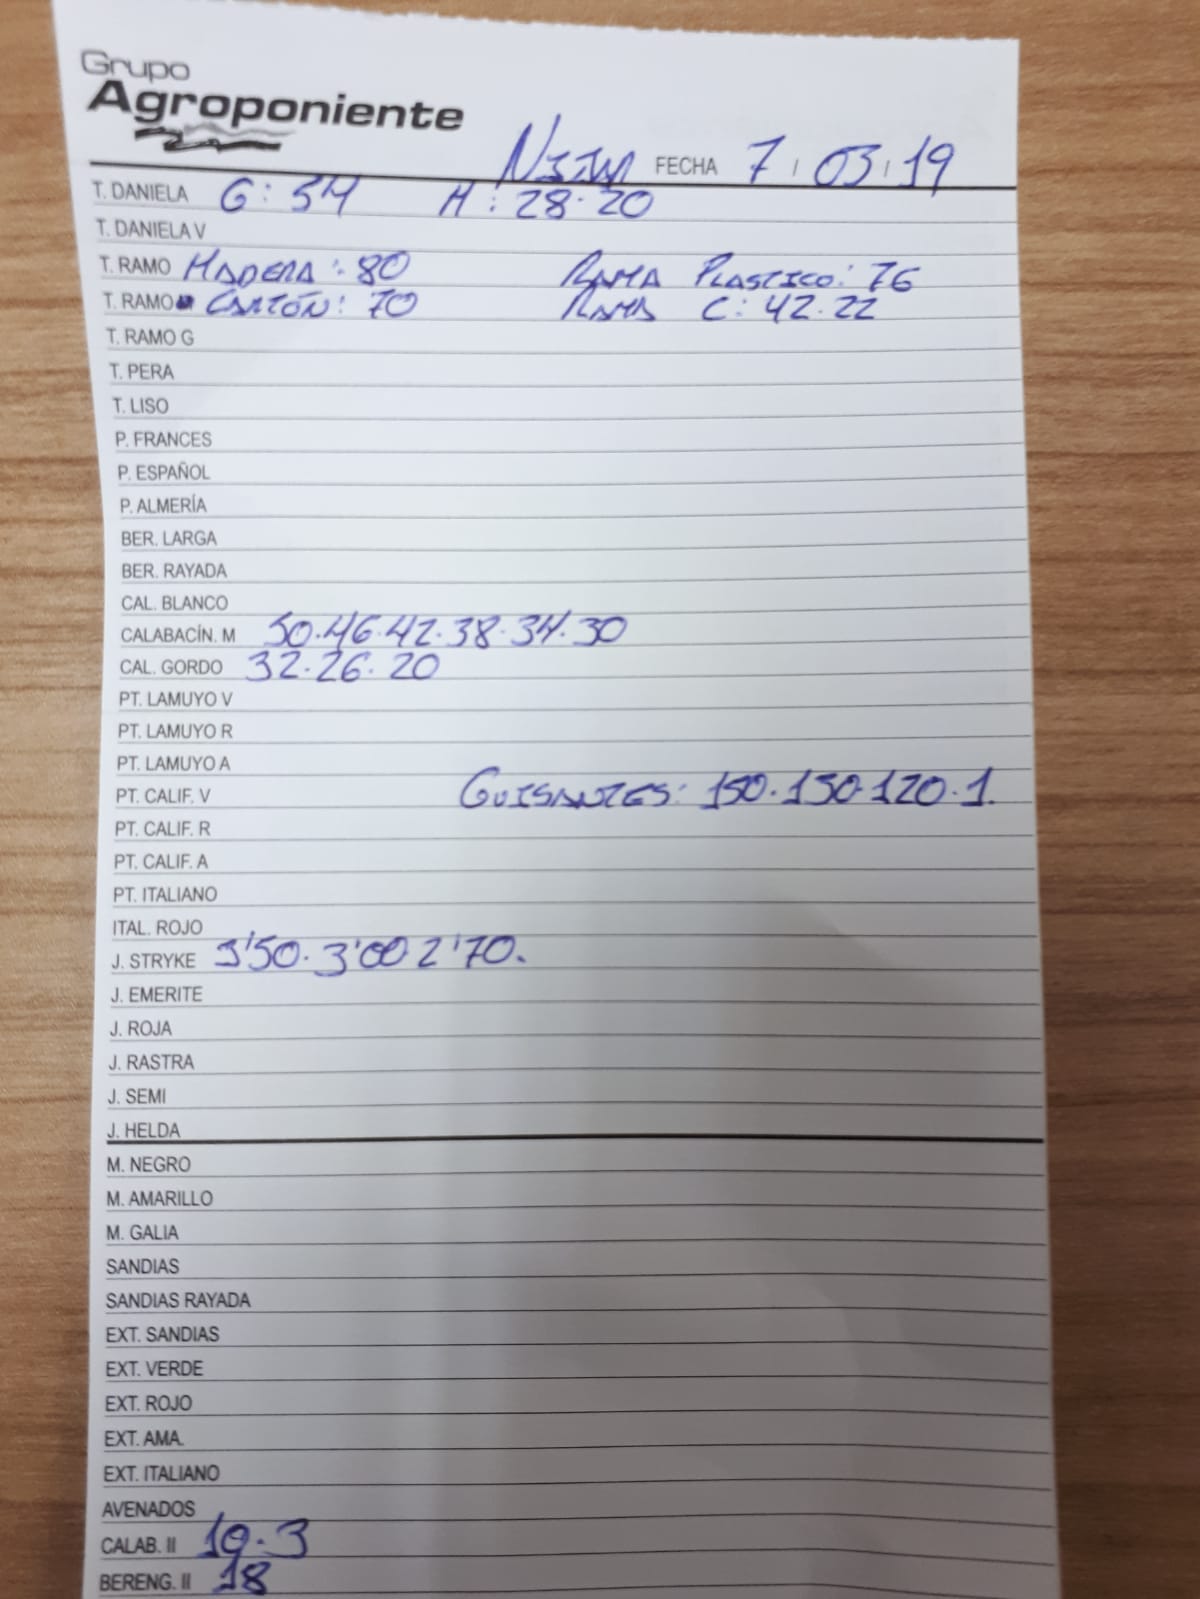 Grupo
Agroponiente
Nijar FECHA 7 / 03 / 19
T. DANIELA G: 54 M: 28.20
T. DANIELA V
T. RAMO MADERA: 80 RAMA PLASTICO: 76
T. RAMO CARTÓN: 70 RAMA C: 42.22
T. RAMO G
T. PERA
T. LISO
P. FRANCES
P. ESPAÑOL
P. ALMERÍA
BER. LARGA
BER. RAYADA
CAL. BLANCO
CALABACÍN. M 50.46.42.38.34.30
CAL. GORDO 32.26.20
PT. LAMUYO V
PT. LAMUYO R
PT. LAMUYO A
PT. CALIF. V GUISANTES: 150.130.120.1.
PT. CALIF. R
PT. CALIF. A
PT. ITALIANO
ITAL. ROJO
J. STRYKE 3'50.3'00 2'70.
J. EMERITE
J. ROJA
J. RASTRA
J. SEMI
J. HELDA
M. NEGRO
M. AMARILLO
M. GALIA
SANDIAS
SANDIAS RAYADA
EXT. SANDIAS
EXT. VERDE
EXT. ROJO
EXT. AMA.
EXT. ITALIANO
AVENADOS
CALAB. II 19.3
BERENG. II 18